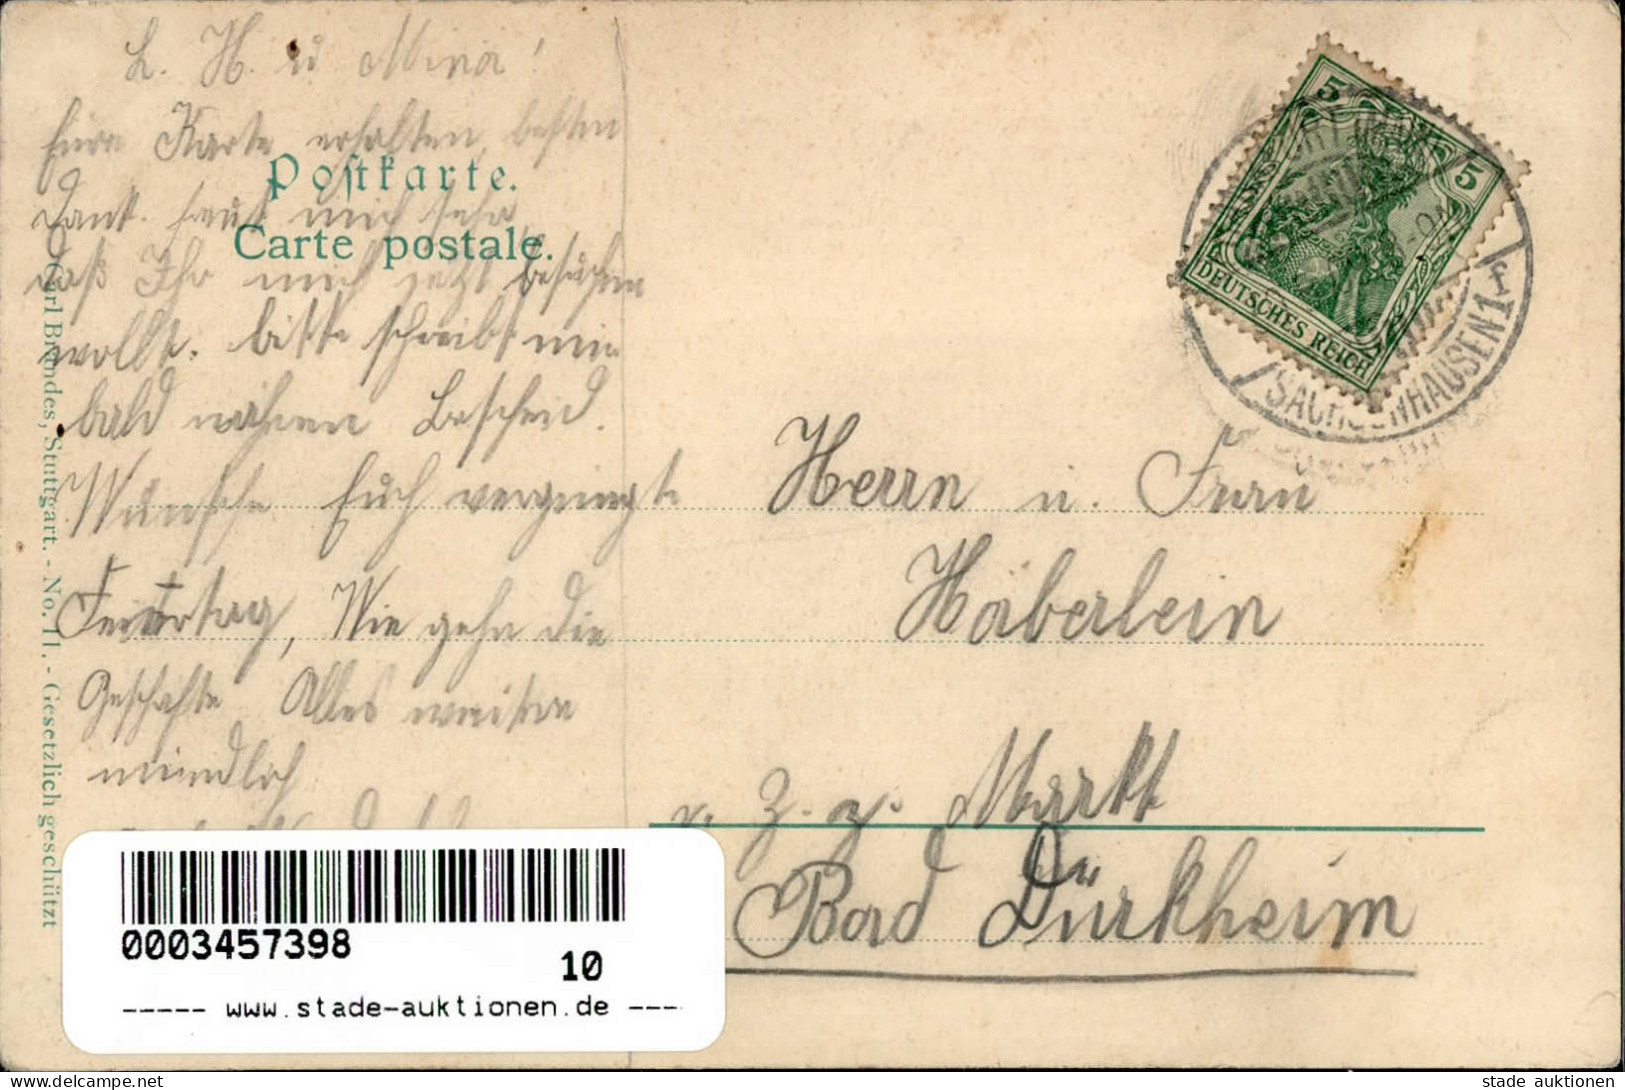 L. H. u Mina!
Eure Karte erhalten, besten
Dank. freut mich sehr
daß Ihr mich jetzt besuchen
wollt. bitte schreibt mir
bald näheren Bescheid.
Wünsche Euch vergnügte
Feiertag, Wie gehn die
Geschäfte Alles weitere
mündlich
Postkarte.
Carte postale.
Carl Brandes, Stuttgart. - No. 11. - Gesetzlich geschützt
5 5
DEUTSCHES REICH
SACHSENHAUSEN 1
Herrn u. Frau
Häberlein
z. Z. Markt
Bad Dürkheim
0003457398
10
----- www.stade-auktionen.de ----
stade auktionen